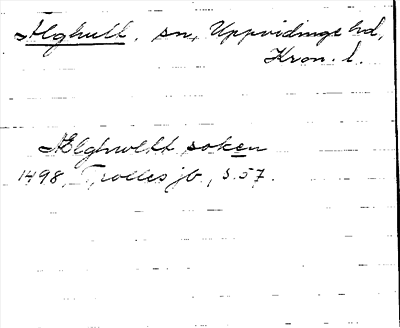 Älghult, sn, Uppvidinge hd,
Kron. l.
Ælghwltt soken
1498, Trolles jb, s. 57.